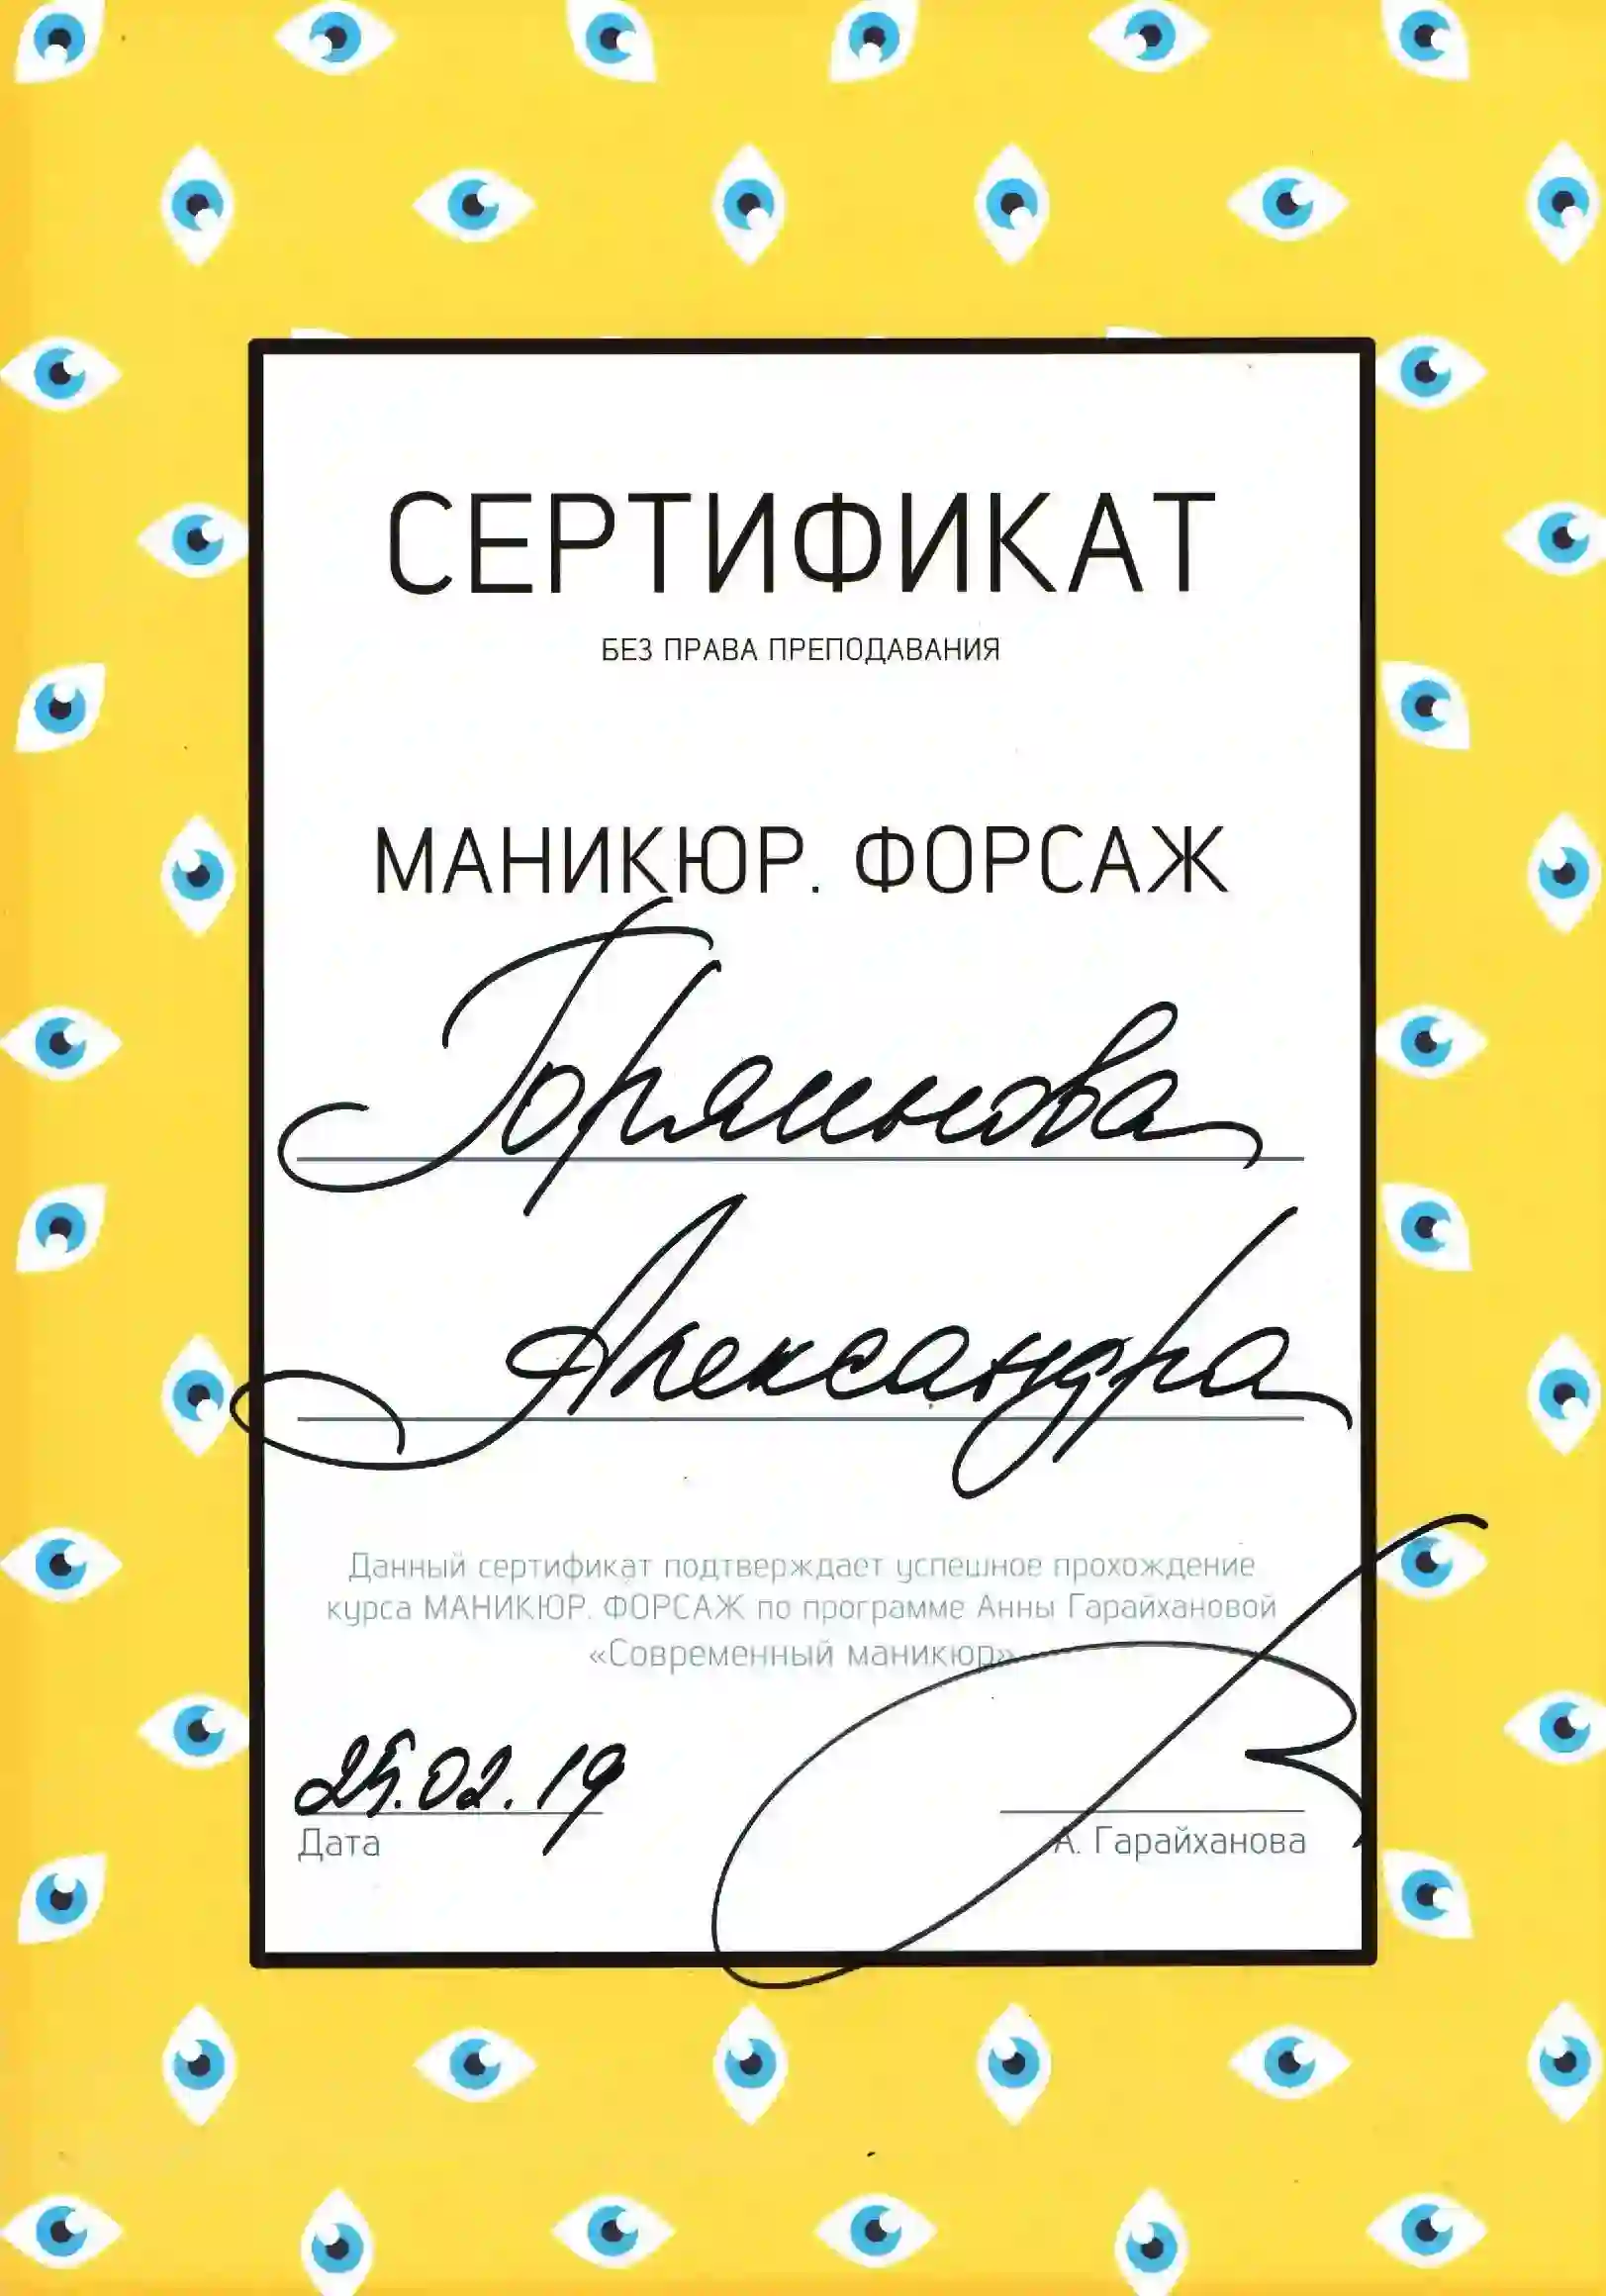 СЕРТИФИКАТ
БЕЗ ПРАВА ПРЕПОДАВАНИЯ
МАНИКЮР. ФОРСАЖ
Горяинова
Александра
Данный сертификат подтверждает успешное прохождение
курса МАНИКЮР. ФОРСАЖ по программе Анны Гарайхановой
«Современный маникюр»
25.02.19
Дата
А. Гарайханова